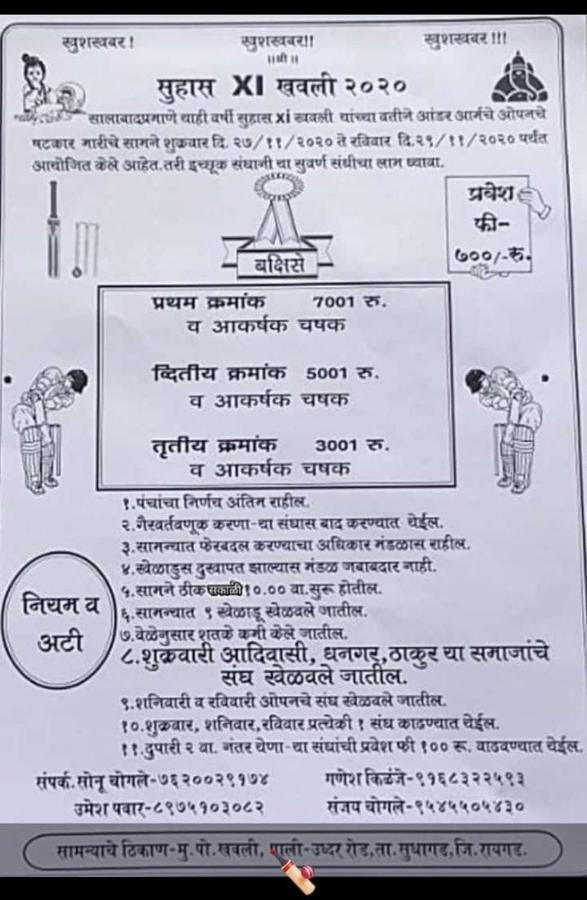 खुशखबर ! खुशखबर!! खुशखबर !!!
॥श्री॥
सुहास XI खवली २०२०
सालाबादप्रमाणे याही वर्षी सुहास xi खवली यांच्या वतीने आंडर आर्मचे ओपनचे
षटकार मारीचे सामने शुक्रवार दि. २७/११/२०२० ते रविवार दि.२९/११/२०२० पर्यंत
आयोजित केले आहेत.तरी इच्छूक संघानी या सुवर्ण संधीचा लाभ घ्यावा.
प्रवेश
फी-
७००/-रु.
बक्षिसे
प्रथम क्रमांक 7001 रु.
व आकर्षक चषक
व्दितीय क्रमांक 5001 रु.
व आकर्षक चषक
तृतीय क्रमांक 3001 रु.
व आकर्षक चषक
नियम व
अटी
१.पंचांचा निर्णय अंतिम राहील.
२.गैरवर्तवणूक करणा-या संघास बाद करण्यात येईल.
३.सामन्यात फेरबदल करण्याचा अधिकार मंडळास राहील.
४.खेळाडुस दुखापत झाल्यास मंडळ जबाबदार नाही.
५.सामने ठीक सकाळी १०.०० वा.सुरू होतील.
६.सामन्यात ९ खेळाडू खेळवले जातील.
७.वेळेनुसार शतके कमी केले जातील.
८.शुक्रवारी आदिवासी, धनगर,ठाकुर या समाजांचे
संघ खेळवले जातील.
९.शनिवारी व रविवारी ओपनचे संघ खेळवले जातील.
१०.शुक्रवार, शनिवार,रविवार प्रत्येकी १ संघ काढण्यात येईल.
११.दुपारी २ वा. नंतर येणा-या संघांची प्रवेश फी १०० रू. वाढवण्यात येईल.
संपर्क.सोनू चोगले-७६२००२९१७४ गणेश किळंजे-९१६८३२२५९३
उमेश पवार-८९७५१०३०८२ संजय चोगले-९५४५५०५४३०
सामन्याचे ठिकाण-मु.पो.खवली, पाली-उध्दर रोड,ता.सुधागड,जि.रायगड.